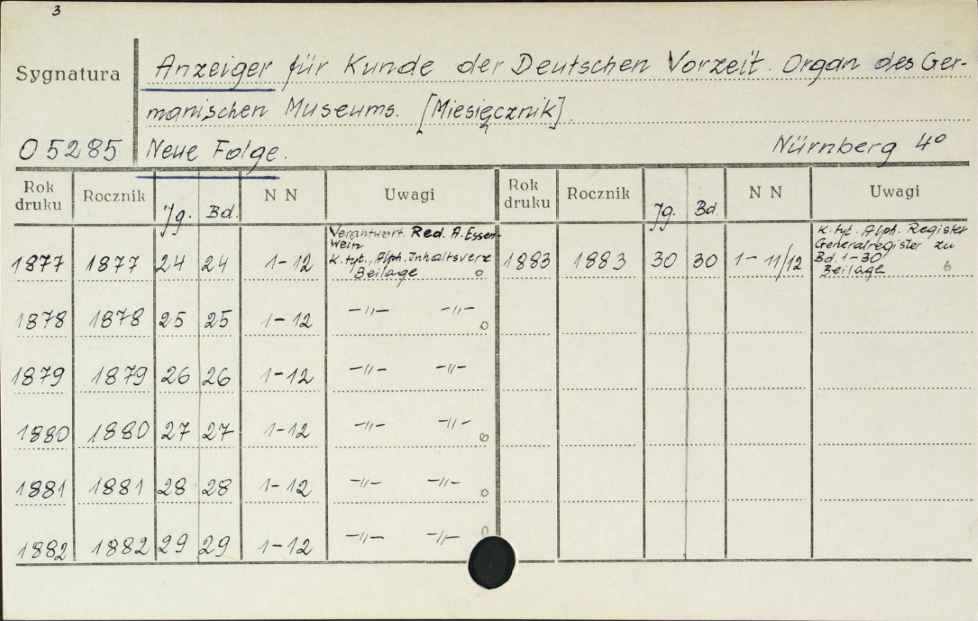 3
Sygnatura Anzeiger für Kunde der Deutschen Vorzeit. Organ des Ger-
manischen Museums. [Miesięcznik].
O 5285 Neue Folge. Nürnberg 4°
Rok druku Rocznik Jg. Bd. N N Uwagi Rok druku Rocznik Jg. Bd N N Uwagi
1877 1877 24 24 1-12 Verantwort. Red. A. Essen-
wein
K. tyt., Alph. Inhaltsverz
Beilage o
1883 1883 30 30 1-11/12 K. tyt. Alph. Register
Generalregister zu
Bd. 1-30
Beilage
1878 1878 25 25 1-12 -"- -"- o
1879 1879 26 26 1-12 -"- -"-
1880 1880 27 27 1-12 -"- -"- o
1881 1881 28 28 1-12 -"- -"- o
1882 1882 29 29 1-12 -"- -"- o